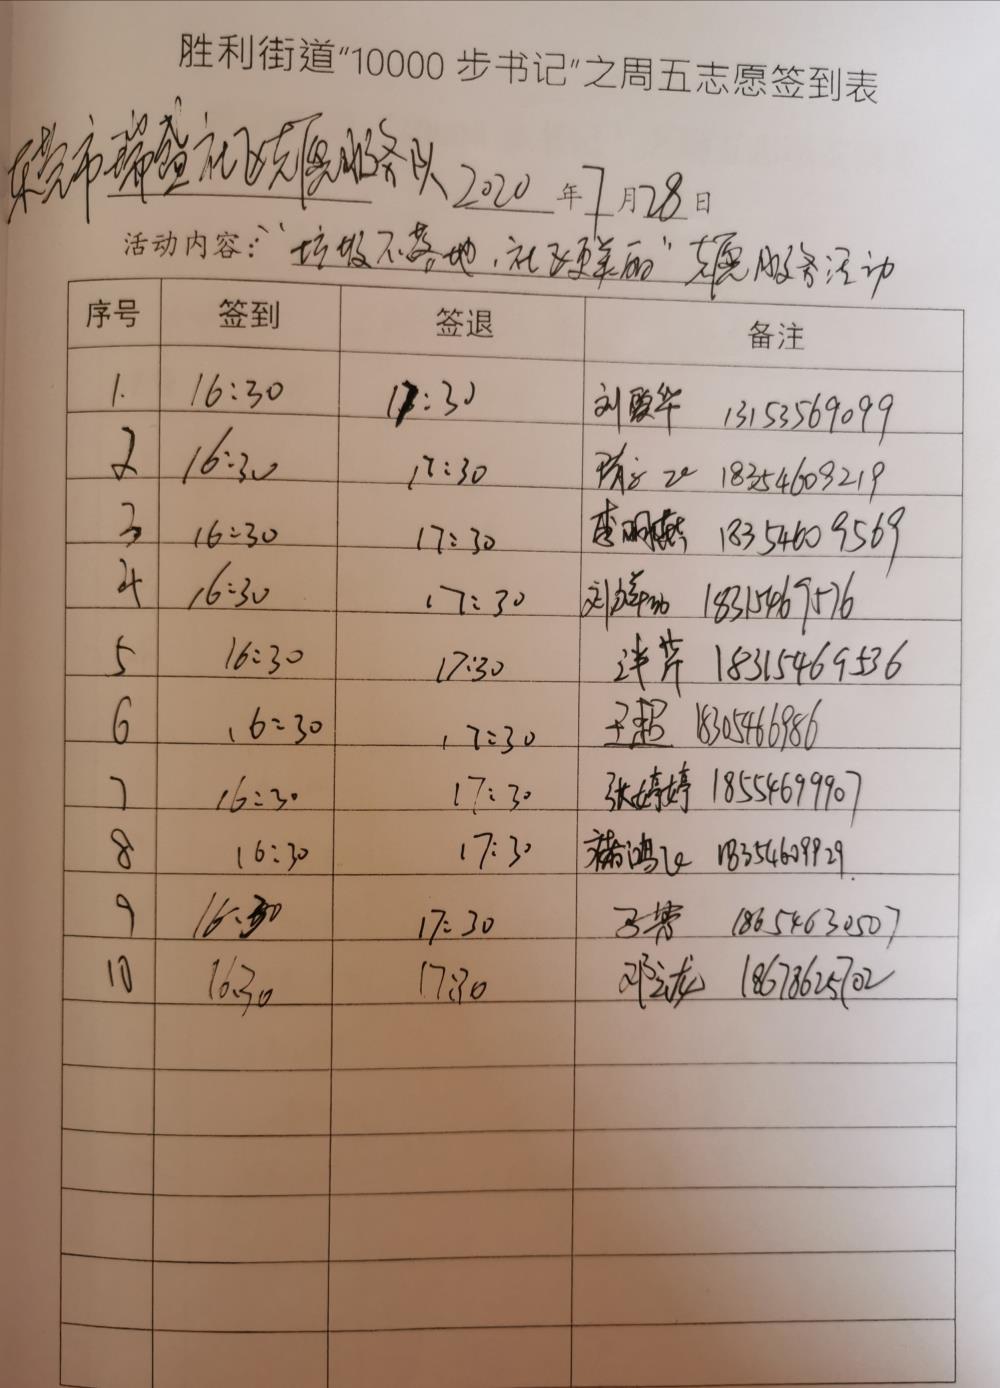 胜利街道“10000 步书记”之周五志愿签到表
东营市瑞盛社区志愿服务队 2020 年 7 月 28 日
活动内容：“垃圾不落地，社区更美丽”志愿服务活动
序号 签到 签退 备注
1. 16:30 17:30 刘 华 13153569099
2 16:30 17:30 18354609219
3 16:30 17:30 李明 18354609569
4 16:30 17:30 刘 18315469576
5 16:30 17:30 芹 18315469536
6 16:30 17:30 王超 18305466986
7 16:30 17:30 张婷婷 18554699907
8 16:30 17:30 鸿飞 18354609929
9 16:30 17:30 18654630507
10 16:30 17:30 邓 龙 18678625702